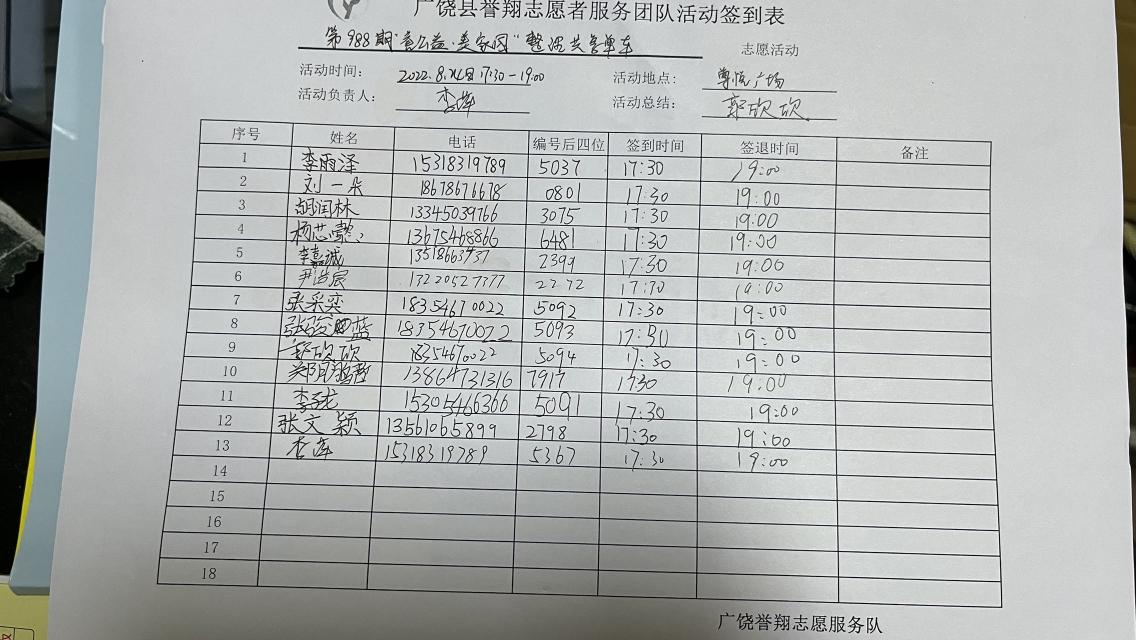 广饶县誉翔志愿者服务团队活动签到表
第988期"善公益·美家园"整理共享单车 志愿活动
活动时间: 2022.8. 17:30-19:00 活动地点: 尊悦广场
活动负责人: 活动总结: 欣欣
序号 姓名 电话 编号后四位 签到时间 签退时间 备注
1 李雨泽 15318319789 5037 17:30 19:00
2 刘一朵 18678676678 0801 17:30 19:00
3 胡润林 13345039766 3075 17:30 19:00
4 杨芯懿 13675468866 6481 17:30 19:00
5 李嘉诚 13518663937 2399 17:30 19:00
6 尹浩宸 13220527377 2272 17:30 19:00
7 张采奕 18354670022 5092 17:30 19:00
8 张 蓝 18354670022 5093 17:30 19:00
9 欣欣 18354670022 5094 17:30 19:00
10 13864731316 7917 17:30 19:00
11 李珑 15305466366 5091 17:30 19:00
12 张文颖 13561065899 2798 17:30 19:00
13 15318319789 5367 17:30 19:00
14
15
16
17
18
广饶誉翔志愿服务队